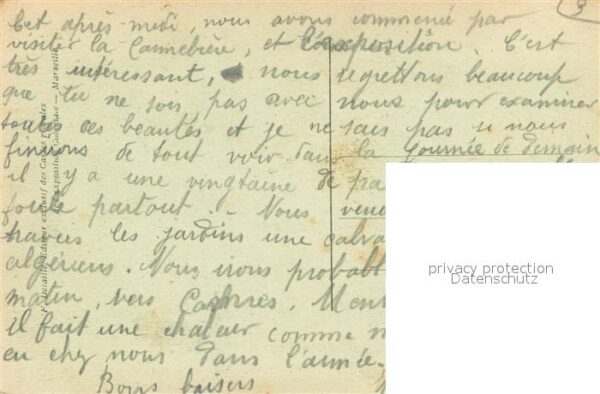 3
Cet après-midi, nous avons commencé par
visiter la Cannebière, et l'exposition. C'est
très intéressant, nous regrettons beaucoup
que tu ne sois pas avec nous pour examiner
toutes ces beautés et je ne sais pas si nous
finirons de tout voir dans la journée de demain
il y a une vingtaine de pa
foule partout. Nous
travers les jardins une
algériens. Nous irons probabl
matin, vers
Il fait une chaleur comme
eu chez nous dans l'année.
Bons baisers
Editeur exclusif des Cartes Postales
Exposition Coloniale - Marseille
privacy protection
Datenschutz